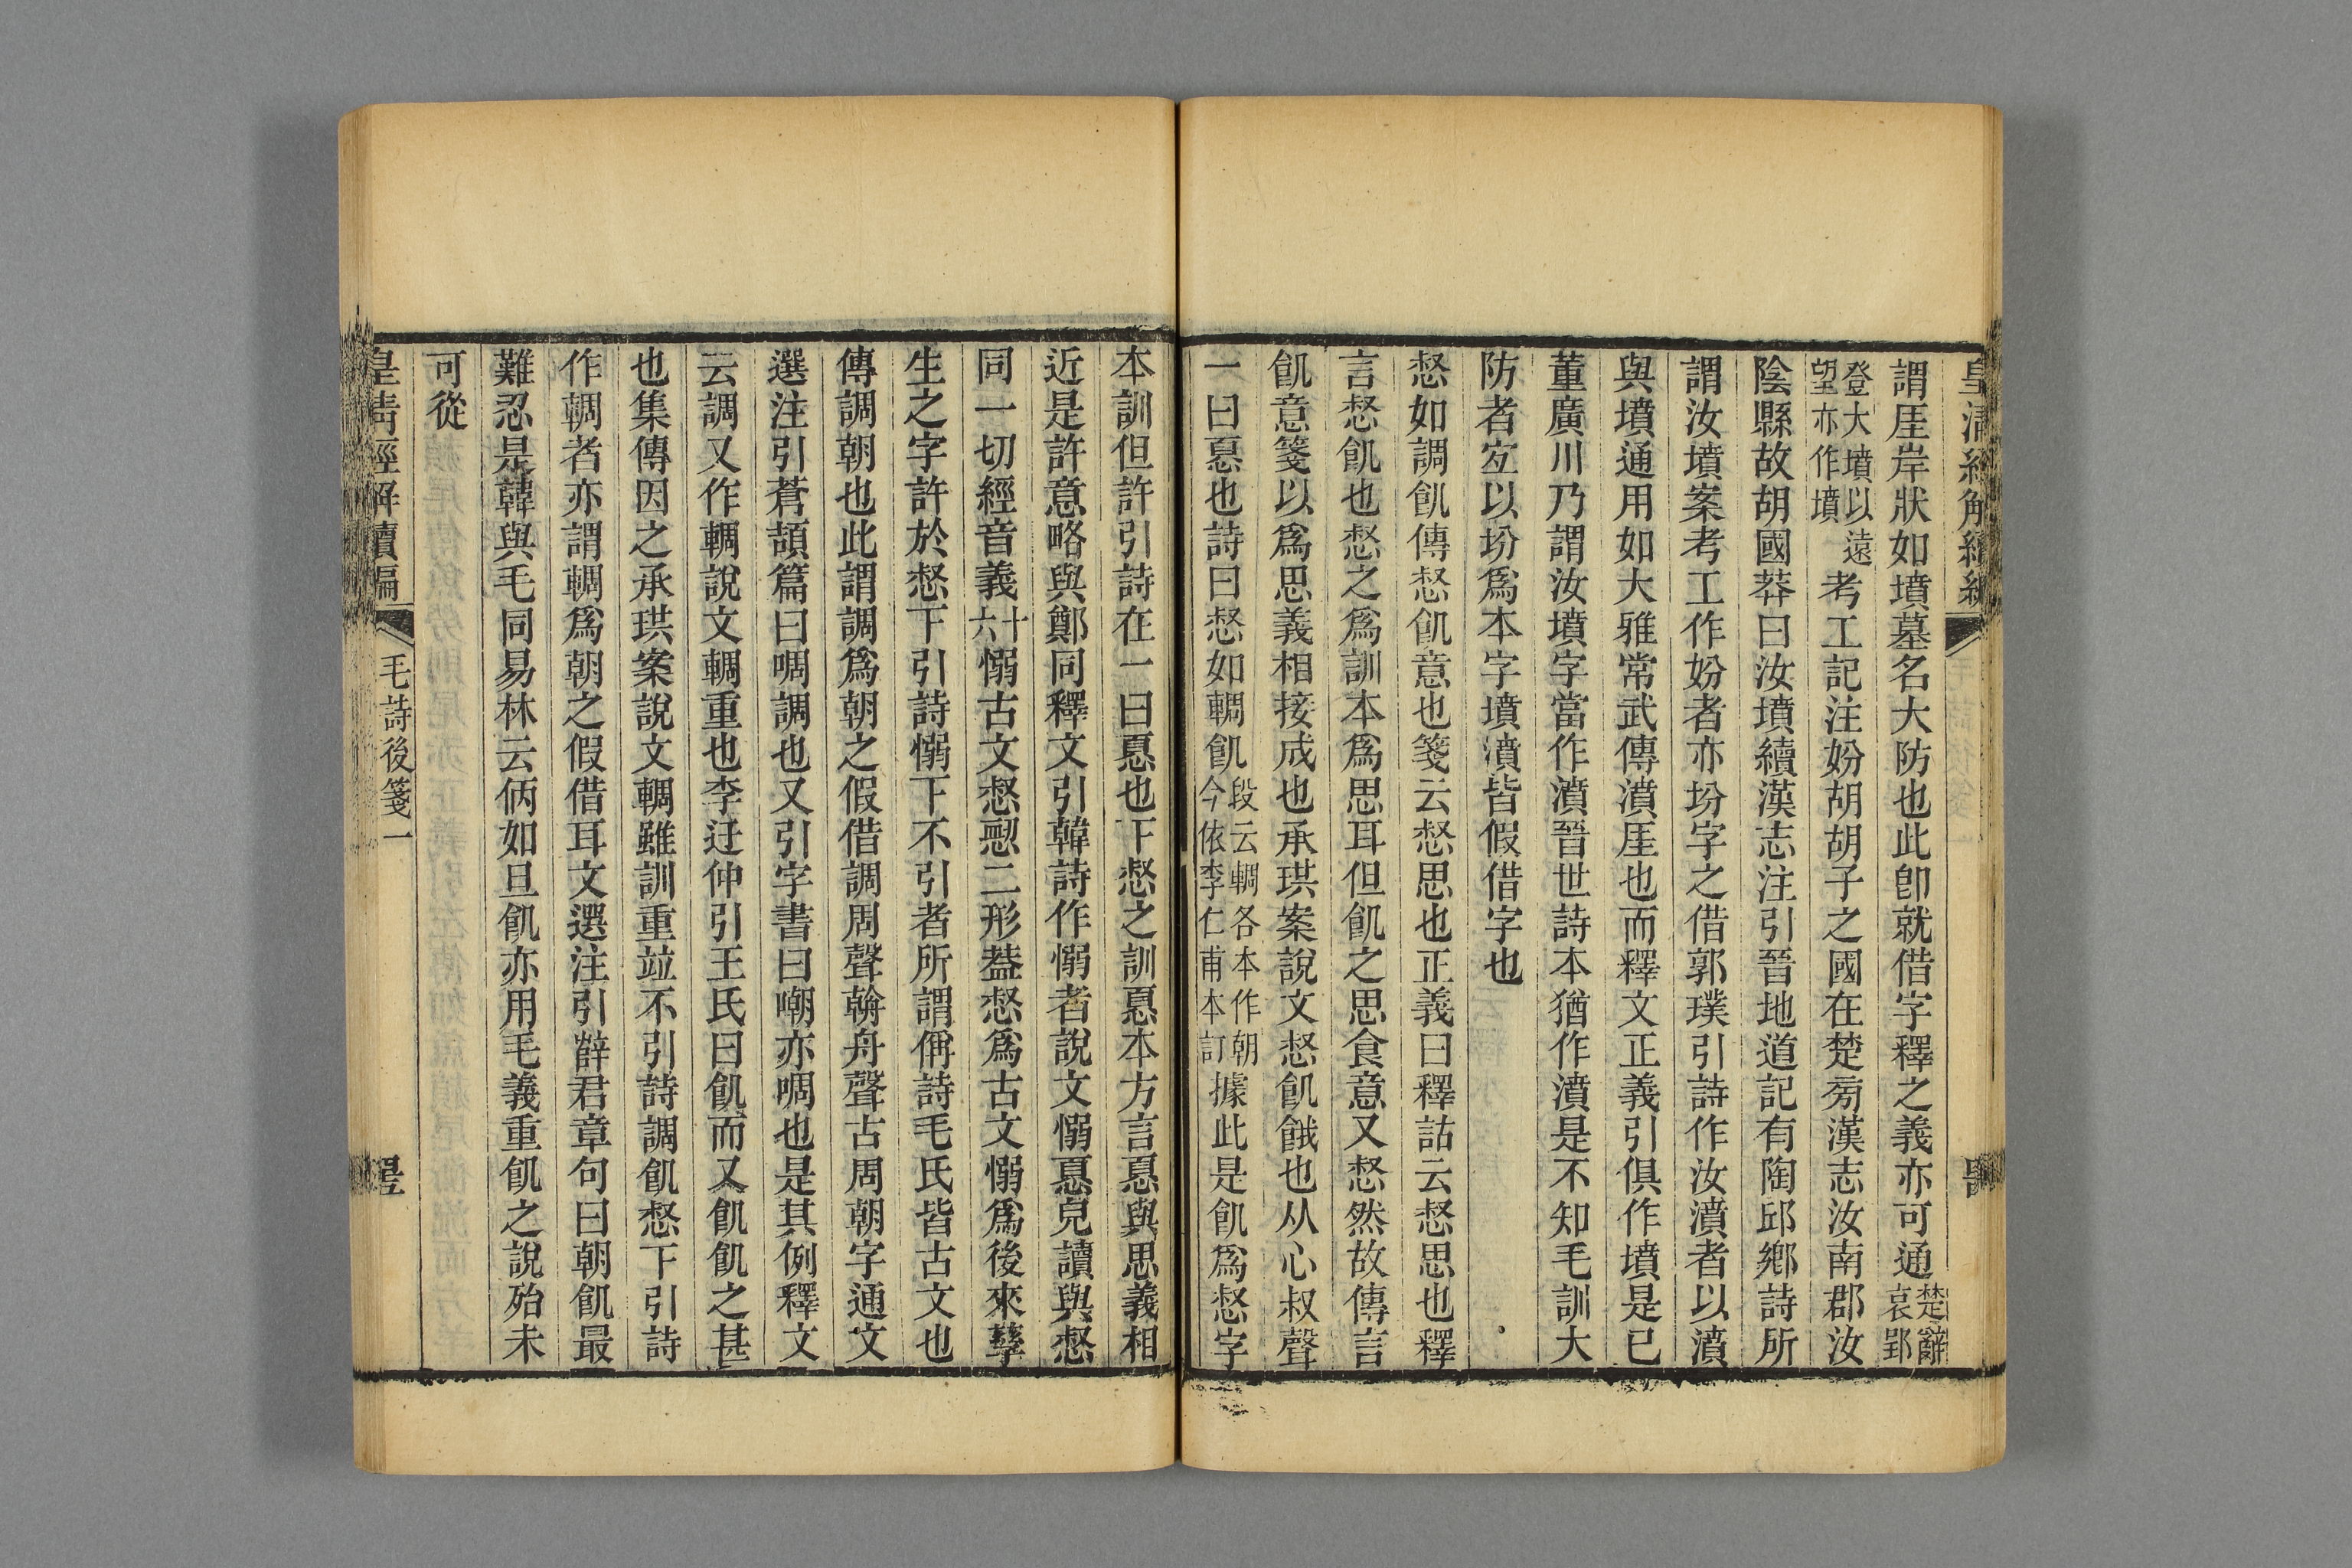 謂厓岸狀如墳墓名大防也此卽就借字釋之義亦可通楚辭哀郢
登大墳以遠望亦作墳考工記注妢胡胡子之國在楚旁漢志汝南郡汝
陰縣故胡國莽曰汝墳續漢志注引晉地道記有陶邱鄉詩所
謂汝墳案考工作妢者亦坋字之借郭璞引詩作汝濆者以濆
與墳通用如大雅常武傳濆厓也而釋文正義引俱作墳是已
董廣川乃謂汝墳字當作濆晉世詩本猶作濆是不知毛訓大
防者宐以坋爲本字墳濆皆假借字也
惄如調飢傳惄飢意也箋云惄思也正義曰釋詁云惄思也釋
言惄飢也惄之爲訓本爲思耳但飢之思食意又惄然故傳言
飢意箋以爲思義相接成也承珙案說文惄飢餓也从心叔聲
一曰惪也詩曰惄如輖飢段云輖各本作朝今依李仁甫本訂據此是飢爲惄字
本訓但許引詩在一曰惪也下惄之訓惪本方言惪與思義相
近是許意略與鄭同釋文引韓詩作愵者說文愵惪皃讀與惄
同一切經音義十六愵古文惄㥾二形葢惄爲古文愵爲後來孳
生之字許於惄下引詩愵下不引者所謂偁詩毛氏皆古文也
傳調朝也此謂調爲朝之假借調周聲翰舟聲古周朝字通文
選注引蒼頡篇曰啁調也又引字書曰嘲亦啁也是其例釋文
云調又作輖說文輖重也李迂仲引王氏曰飢而又飢飢之甚
也集傳因之承珙案說文輖雖訓重竝不引詩調飢惄下引詩
作輖者亦謂輖爲朝之假借耳文選注引薛君章句曰朝飢最
難忍是韓與毛同易林云㑂如旦飢亦用毛義重飢之說殆未
可從
皇清經解續編
毛詩後箋一